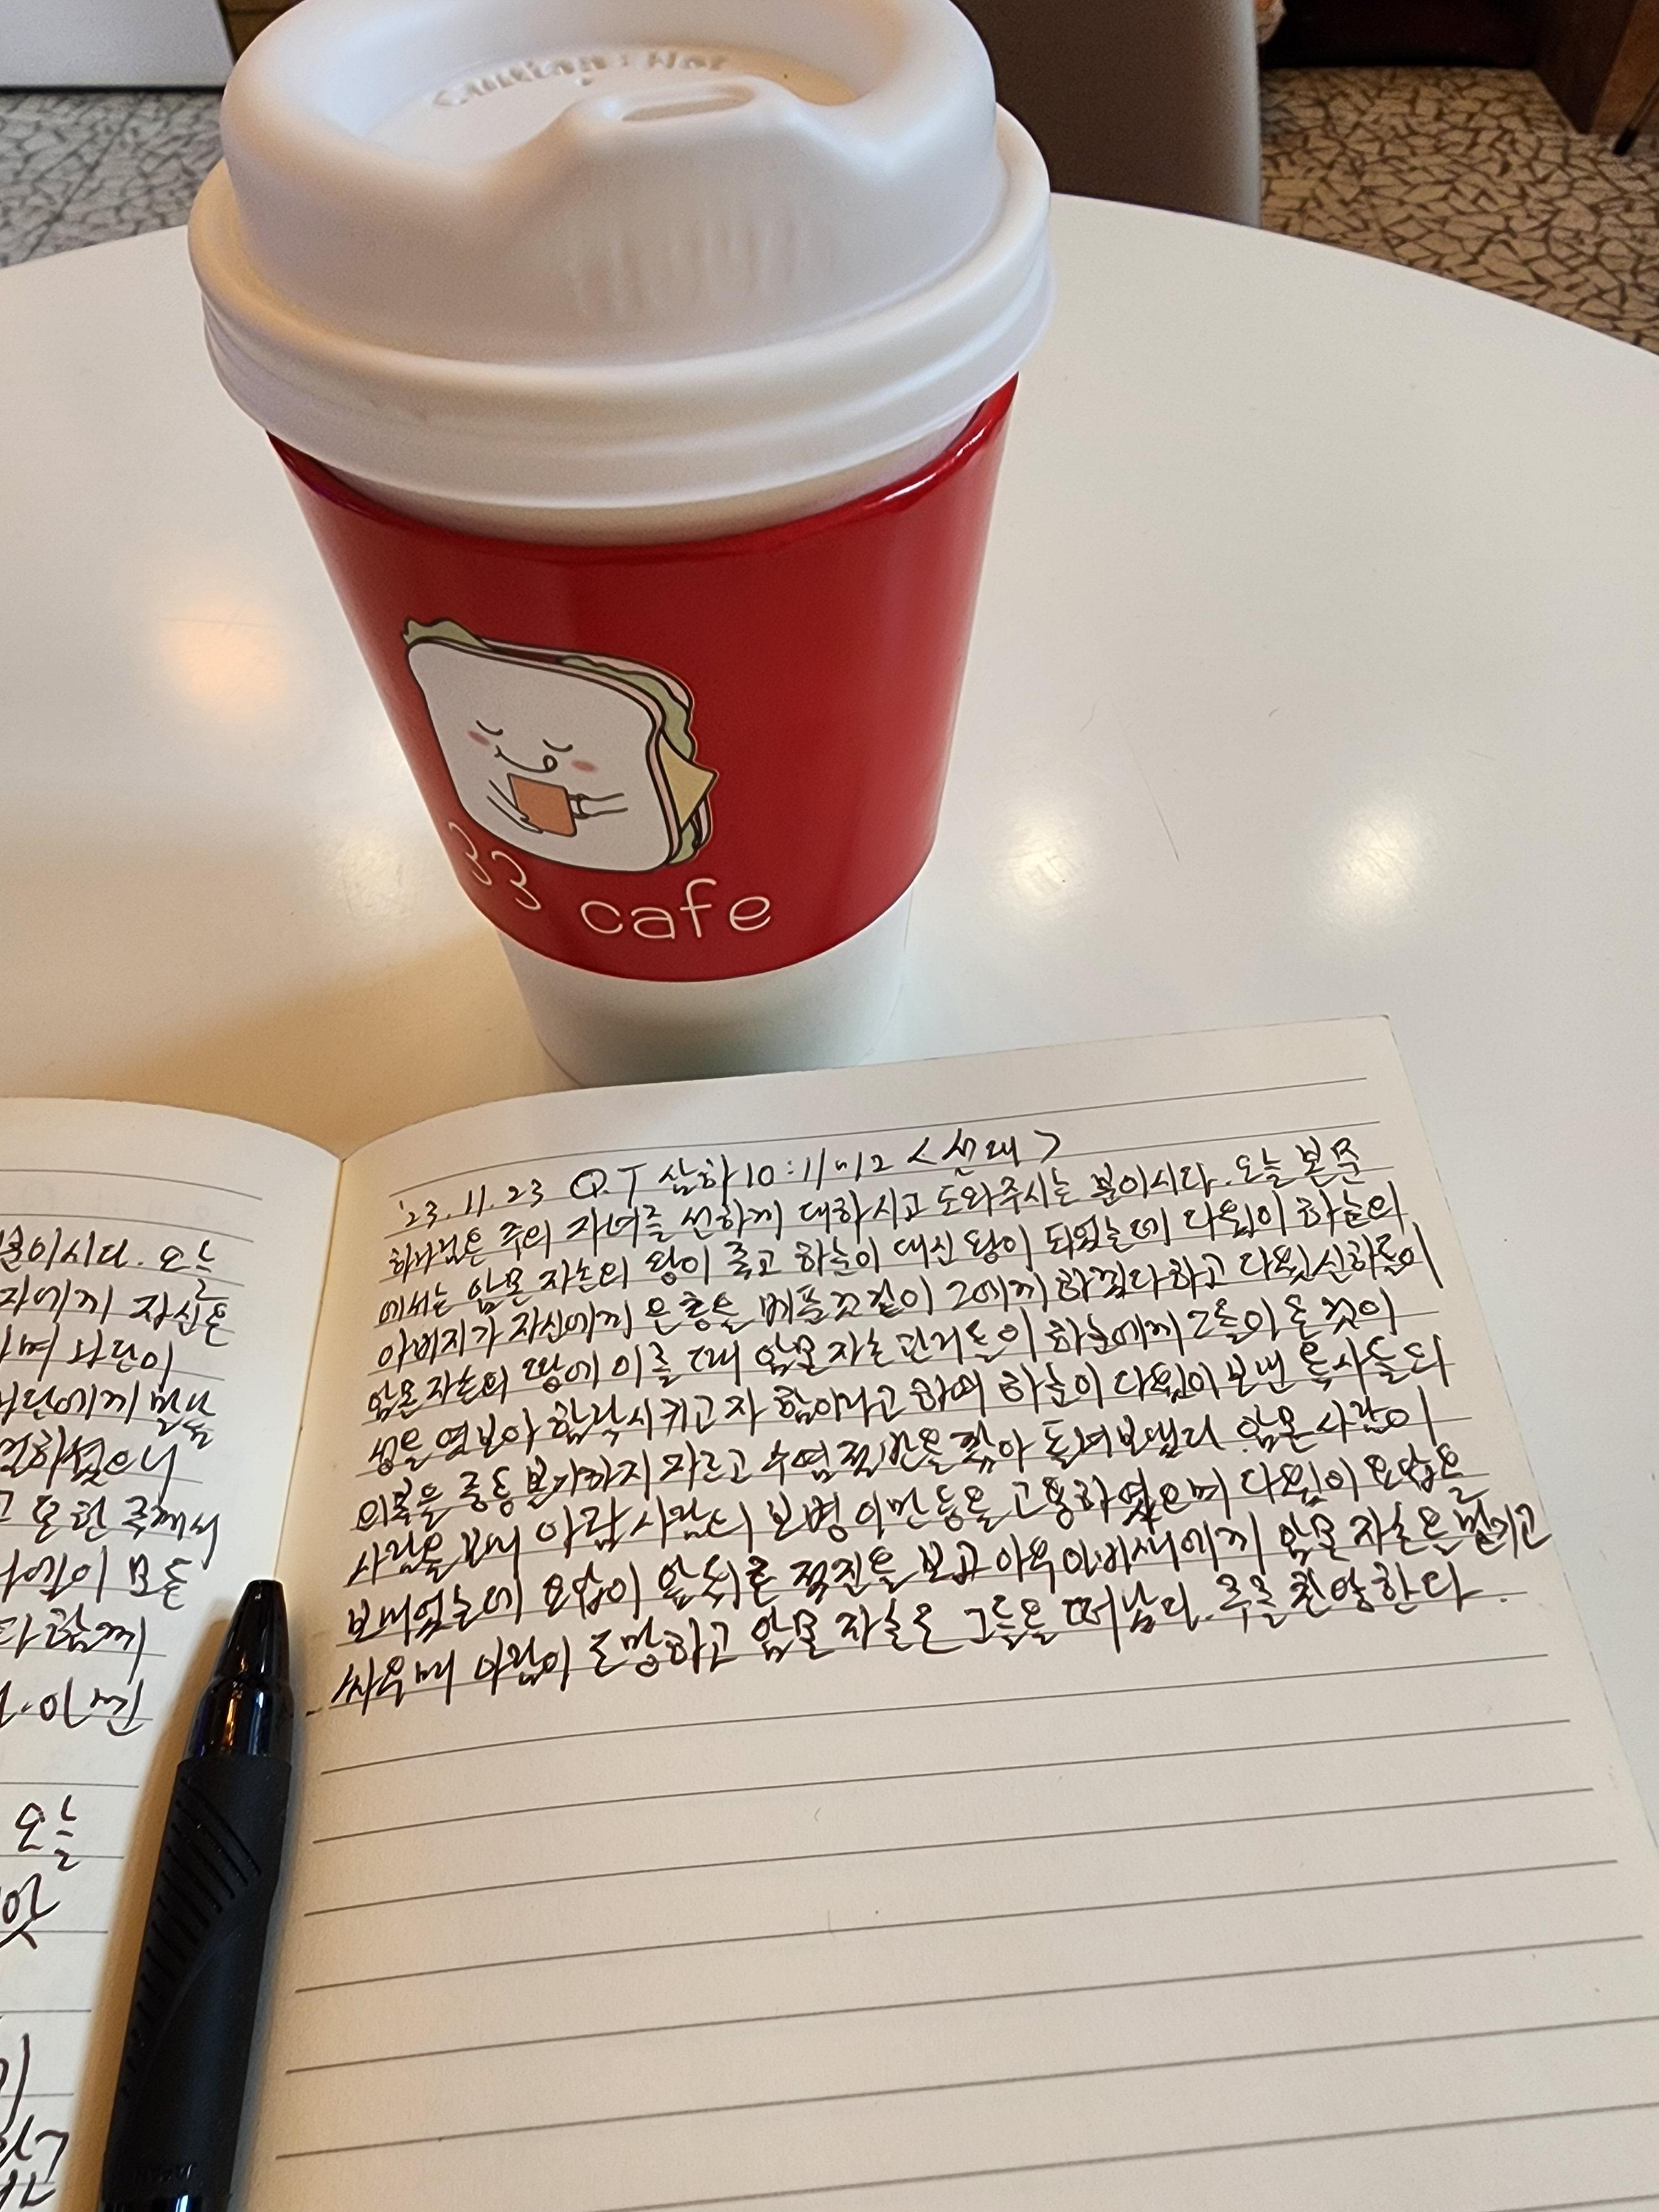 Caution : Hot
33 cafe
'23.11.23 Q.T 삼하10:11~12 <선대>
하나님은 주의 자녀를 선하게 대하시고 도와주시는 분이시다. 오늘 본문
에서는 암몬 자손의 왕이 죽고 하눈이 대신 왕이 되었는데 다윗이 하눈의
아버지가 자신에게 은총을 베푼것 같이 그에게 하겠다하고 다윗 신하들이
암몬자손의 땅에 이를 때 암몬 자손 관리들이 하눈에게 그들이 온 것이
성을 엿보아 함락시키고자 함이라고 하며 하눈이 다윗이 보낸 특사들의
의복을 중동볼기까지 자르고 수염 절반을 깎아 돌려보낸다. 암몬 사람이
사람을 보내 아람 사람의 보병 이만 등을 고용하였으며 다윗이 요압을
보내었는데 요압이 앞뒤로 적진을 보고 아우 아비새에게 암몬 자손은 맡기고
싸우매 아람이 도망하고 암몬 자손은 그들을 떠난다. 주를 찬양한다.
이시다. 오늘
자에게 자신을
며
에게
하셨으니
주께서
이 모든
함께
오늘